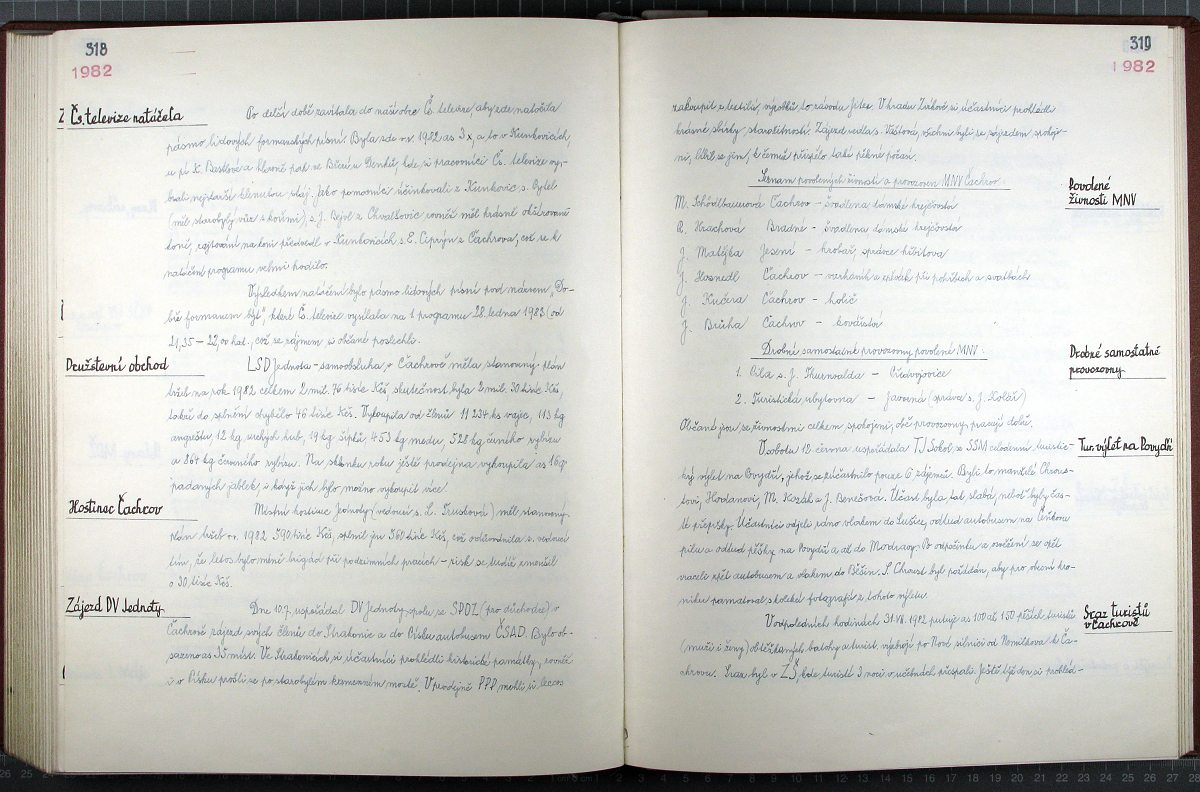 318
1982
Čs. televize natáčela
Po delší době zavítala do naší obce Čs. televize, aby zde natočila
pásmo lidových formanských písní. Byla zde v r. 1982 as 3x, a to v Kunkovicích,
u pí K. a hlavně pak ve u kde si pracovníci Čs. televize vy-
brali nejstarší klenutou stáj. Jako pomocníci účinkovali z Kunkovic s. Rytel
(měl starobylý vůz s koňmi), s. J. Bejvl z Chvalšovic rovněž měl krásně okšírované
koně, na koni předával v Kunkovicích s. E. Ciprýn z Čachrova, což se k
natáčení programu velmi hodilo.
Výsledkem natáčení bylo pásmo lidových písní pod názvem „Do-
bře formanem být", které Čs. televize vysílala na 1. programu 28. ledna 1983 (od
21,35 – 22,00 hod., což se zájmem si občané poslechli.
Družstevní obchod
LSD Jednota – samoobsluha v Čachrově měla stanovený plán
tržeb na rok 1982 celkem 2 mil. 76 tisíc Kčs, skutečnost byla 2 mil. 30 tisíc Kčs,
takže do splnění chybilo 46 tisíc Kčs. Vykoupila od členů 11 234 ks vajec, 113 kg
angreštu, 12 kg suchých hub, 19 kg šípků, 453 kg medu, 528 kg černého rybízu
a 364 kg červeného rybízu. Na sklonku roku ještě prodejna vykoupila as 16 q
padaných jablek, i když jich bylo možno vykoupit více.
Hostinec Čachrov
Místní hostinec Jednoty (vedoucí s. L. Trusková) měl stanovený
plán tržeb v r. 1982 590 tisíc Kčs, splnil jej 560 tisíc Kčs, což odůvodnila s. vedoucí
tím, že letos bylo méně brigád při podzimních pracích – zisk se tudíž zmenšil
o 30 tisíc Kčs.
Zájezd DV Jednoty
Dne 10.7. uspořádal DV Jednoty spolu se SPOZ (pro důchodce) v
Čachrově zájezd svých členů do Strakonic a do Písku autobusem ČSAD. Bylo ob-
sazeno as 35 míst. Ve Strakonicích si účastníci prohlédli historické památky, rovněž
i v Písku prošli se po starobylém kamenném mostě. V prodejně PPP mohli si leccos
319
1982
zakoupit z textilií, výrobků to závodu Jitex. U hradu Zvíkova si účastníci prohlédli
krásné sbírky, starožitností. Zájezd vedla s. všichni byli se zájezdem spokoje-
ni, líbil se jim, k čemuž přispělo také pěkné počasí.
Seznam povolených živností a provozoven MNV Čachrov:
Povolené
živnosti MNV
M. Schödlbauerová Čachrov – švadlena dámské krejčovství
R. Hrachová Bradné – švadlena dámské krejčovství
J. Matějka Jesení – hrobař, správce hřbitova
J. Hosnedl Čachrov – varhaník a zpěvák při pohřbech a svatbách
J. Kučera Čachrov – holič
J. Brůha Čachrov – kovářství
Drobné samostatné provozovny povolené MNV:
Drobné samostatné
provozovny
1. Pila s. J. Thurnvalda – Předvojovice
2. Turistická ubytovna – Javorná (správce s. J. Kolář)
Občané jsou se živnostmi celkem spokojeni, obě provozovny pracují dobře.
Tur. výlet na Povydří
V sobotu 12. června uspořádala TJ Sokol se SSM celodenní turistic-
ký výlet na Povydří, jehož se zúčastnilo pouze 6 zájemců. Byli to manželé Chrous-
tovi, Hodanovi, M. Kozák a J. Benešová. Účast byla dost slabá, neboť byly čas-
té přepršky. Účastníci odjeli ráno vlakem do Sušice, odtud autobusem na Čeňkovu
pilu a odtud pěšky na Povydří a až do Modravy. Po odpočinku a osvěžení se opět
vraceli zpět autobusem a vlakem do Běšin. S. Chroust byl požádán, aby pro obecní kro-
niku pamatoval s několika fotografií z tohoto výletu.
Sraz turistů
v Čachrově
V odpoledních hodinách 31. VII. 1982 putuje as 100 až 150 pěších turistů
(muži i ženy) obtěžkaných batohy a turist. výzbrojí po Nové silnici od Nemilkova k Ča-
chrovu. Sraz byl v ZŠ kde turisté 3 noci v učebnách přespali. Ještě týž den si prohléd-